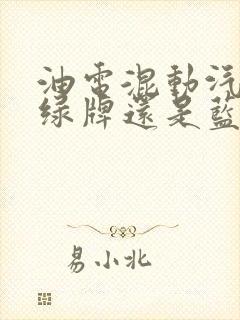 油電混動汽
綠牌還是藍
易小北